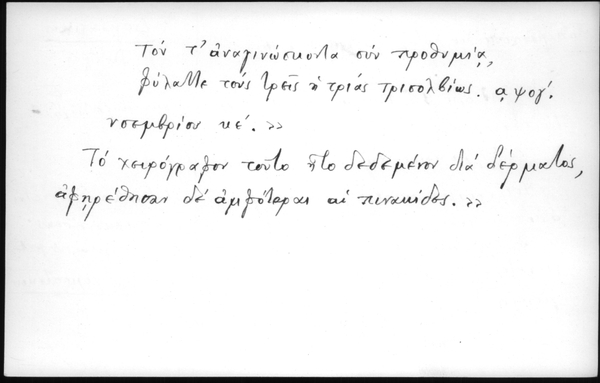 τὸν τ' ἀναγινώσκοντα σὺν προθυμίᾳ,
φύλαττε τοὺς τρεῖς ἡ τριὰς τρισολβίως. αψογ´.
νοεμβρίος κε´. »
Τὸ χειρόγραφον τοῦτο ἦτο δεδεμένον διὰ δέρματος,
ἀφῃρέθησαν δὲ ἀμφότεραι αἱ πινακίδες. »